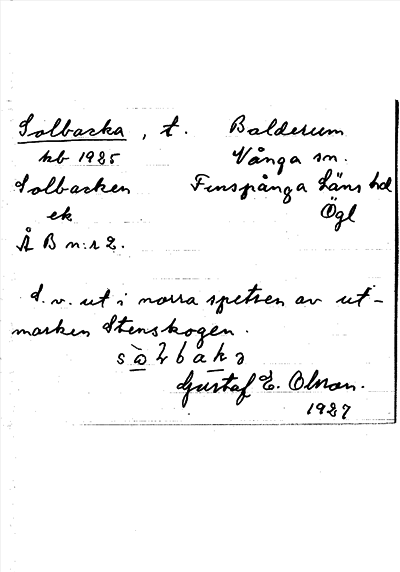 Solbacka, t. Balderum
kb 1925 Vånga sn.
Solbacken Finspånga läns hd
ek Ögl
Å B n:r 2.
d. v. ut i norra spetsen av ut-
marken Stenskogen.
Gustaf E. Olsson.
1927